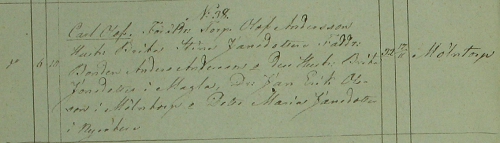 No 38.
Carl Olof. Föräldr. Torp. Olof Andersson
Hustr. Brita Stina Jansdotter. Faddr.
Bonden Anders Andersson o Dess Hustr. Brita
Jansdotter i Magla, Dr. Jan Erik Ols-
son i Mölntorp o Dottr Maria Jansdotter
i Nyséberg
6 10 32 Mölntorp